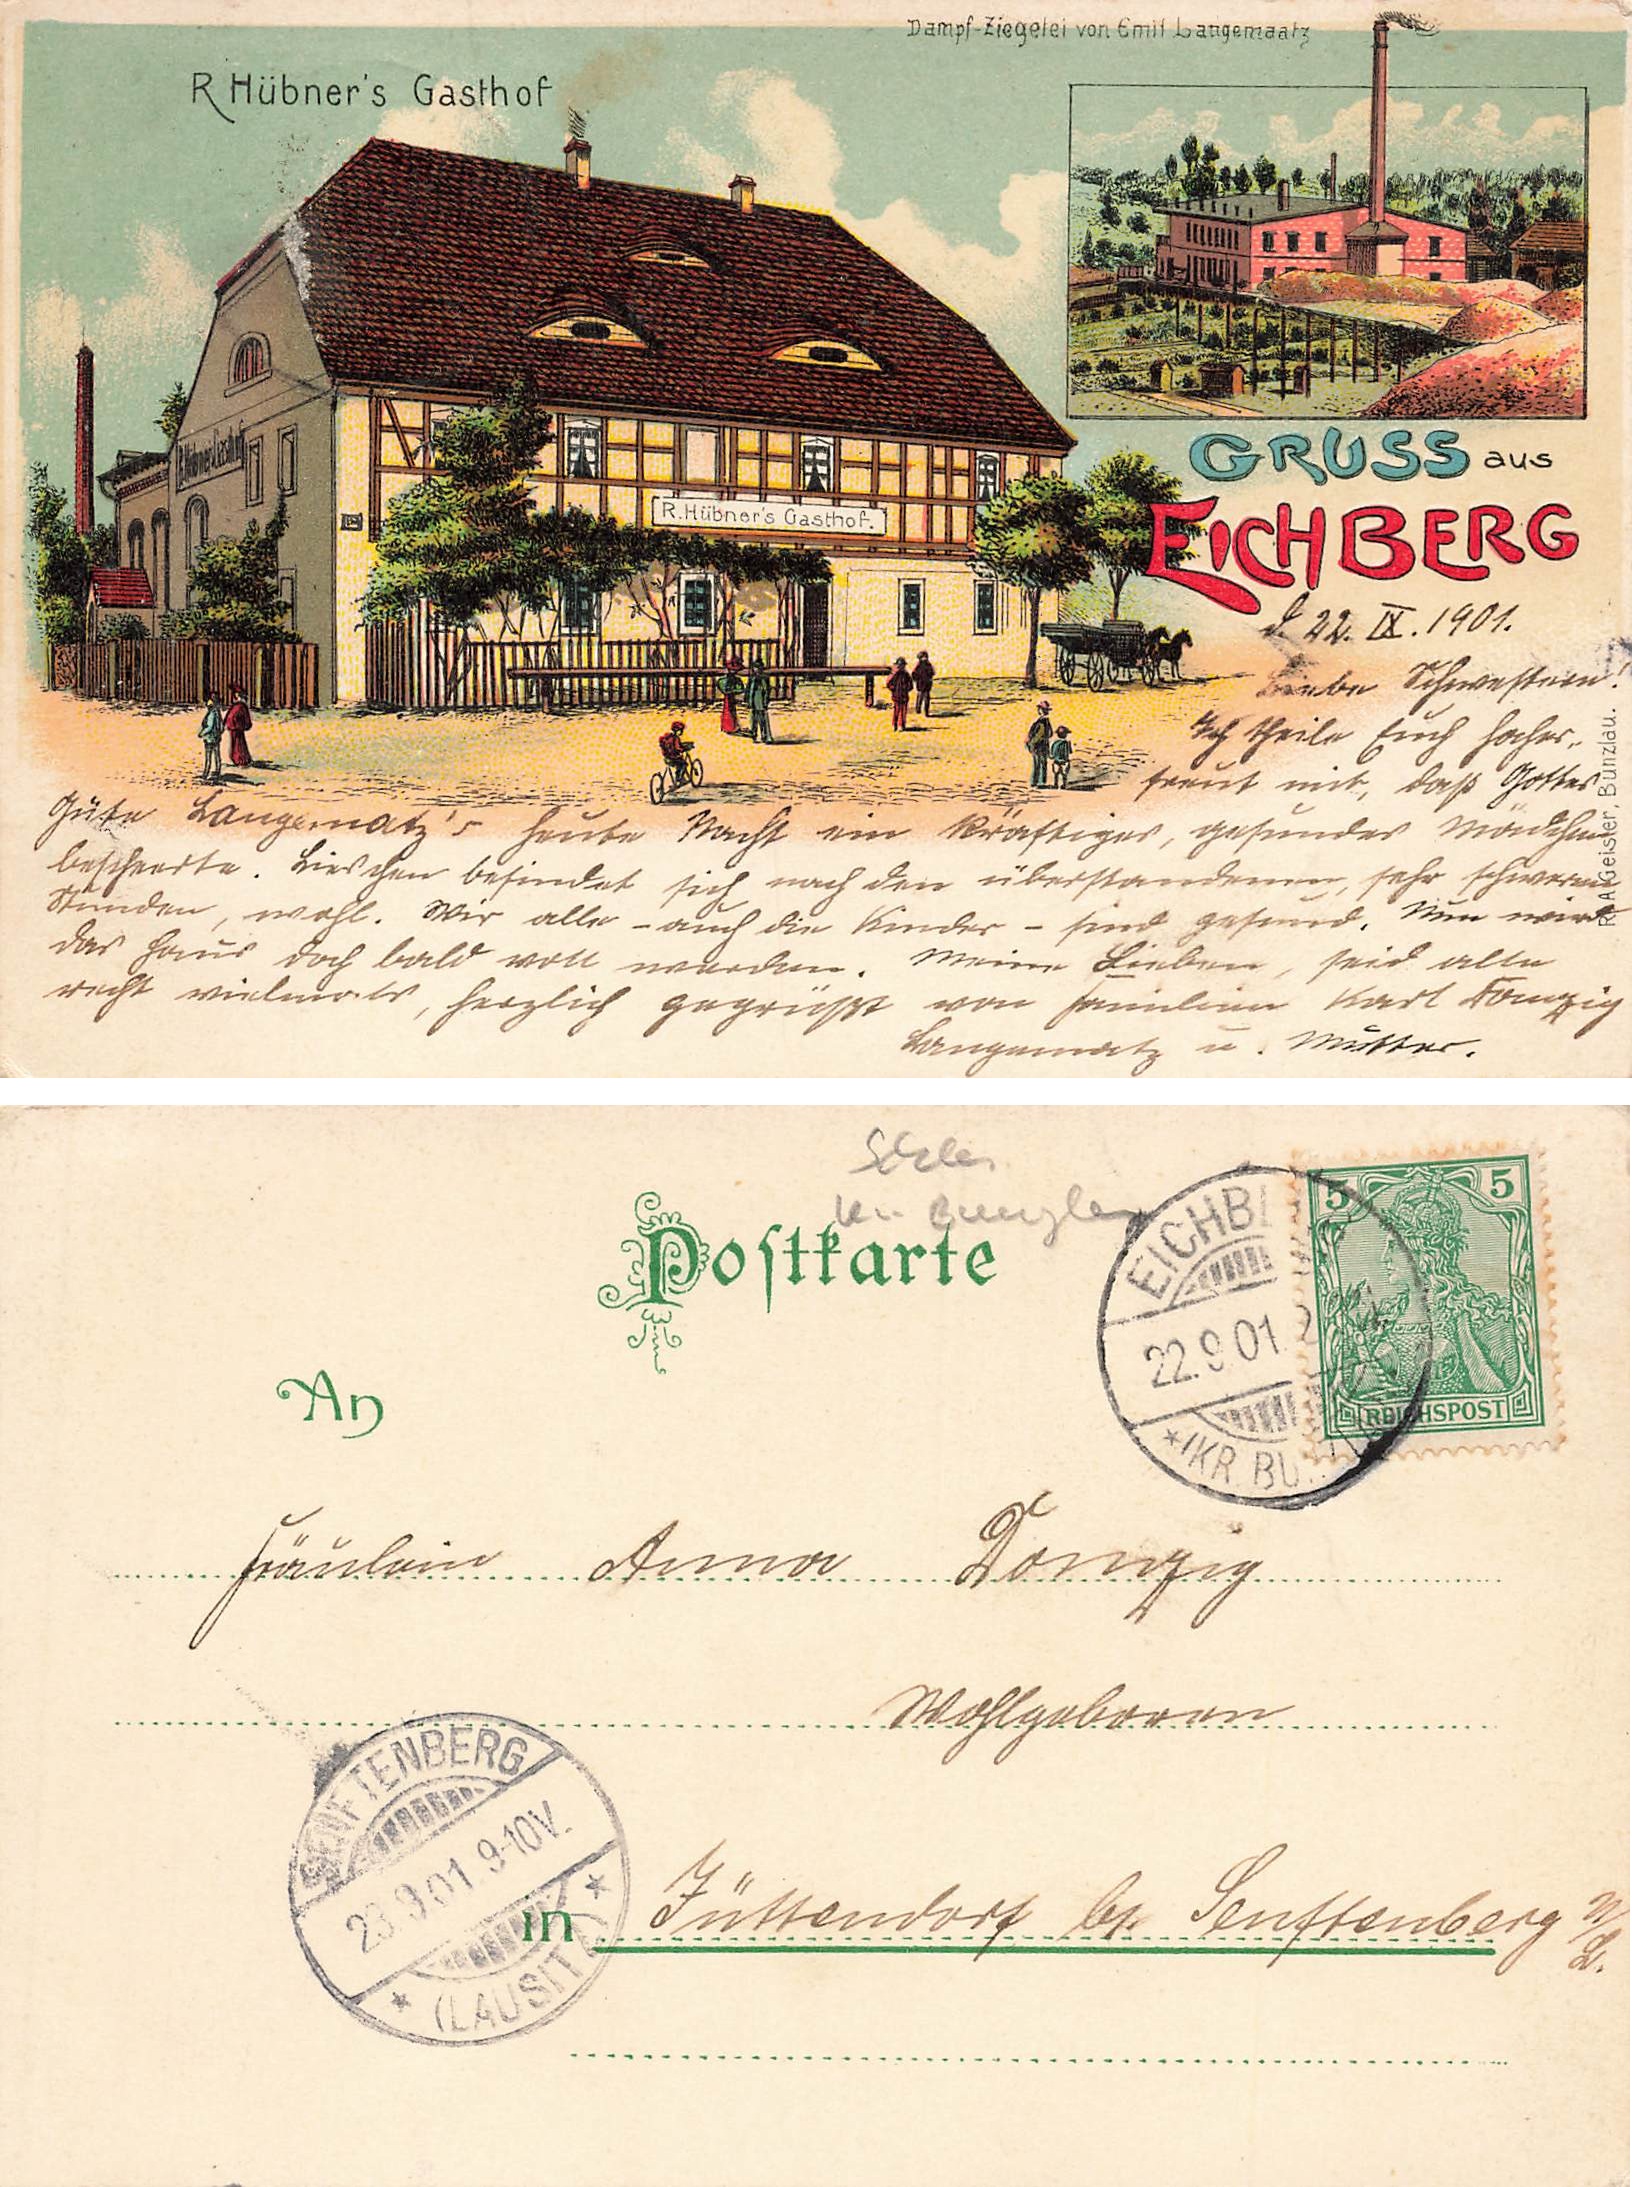 Dampf-Ziegelei von Emil Langemaatz
R. Hübner's Gasthof
R. Hübner's Gasthof
R. Hübner's Gasthof.
GRUSS aus
EICHBERG
d. 22. IX. 1901.
Liebe Schwestern!
Ich theile Euch hocher-
freut mit, daß Gottes
Güte Langematz's heute Nacht ein kräftiges, gesundes Mädchen
bescheerte. Lieschen befindet sich nach den überstandenen, sehr schweren
Stunden, wohl. Wir alle - auch die Kinder - sind gesund. Nun wird
das Haus doch bald voll werden. Meine Lieben, seid alle
recht vielmals, herzlich gegrüßt von Familien Karl Domzig
Langematz u. Mutter.
R. A. Geisler, Bunzlau.
Schles
Kr. Bunzlau
Postkarte
EICHBE
22.9.01
*(KR. BU
5 5
REICHSPOST
An
Fräulein Anna Domzig
Wohlgeboren
SENFTENBERG
23.9.01. 9-10V.
* (LAUSITZ) *
in Jüttendorf bz. Senftenberg N/L.